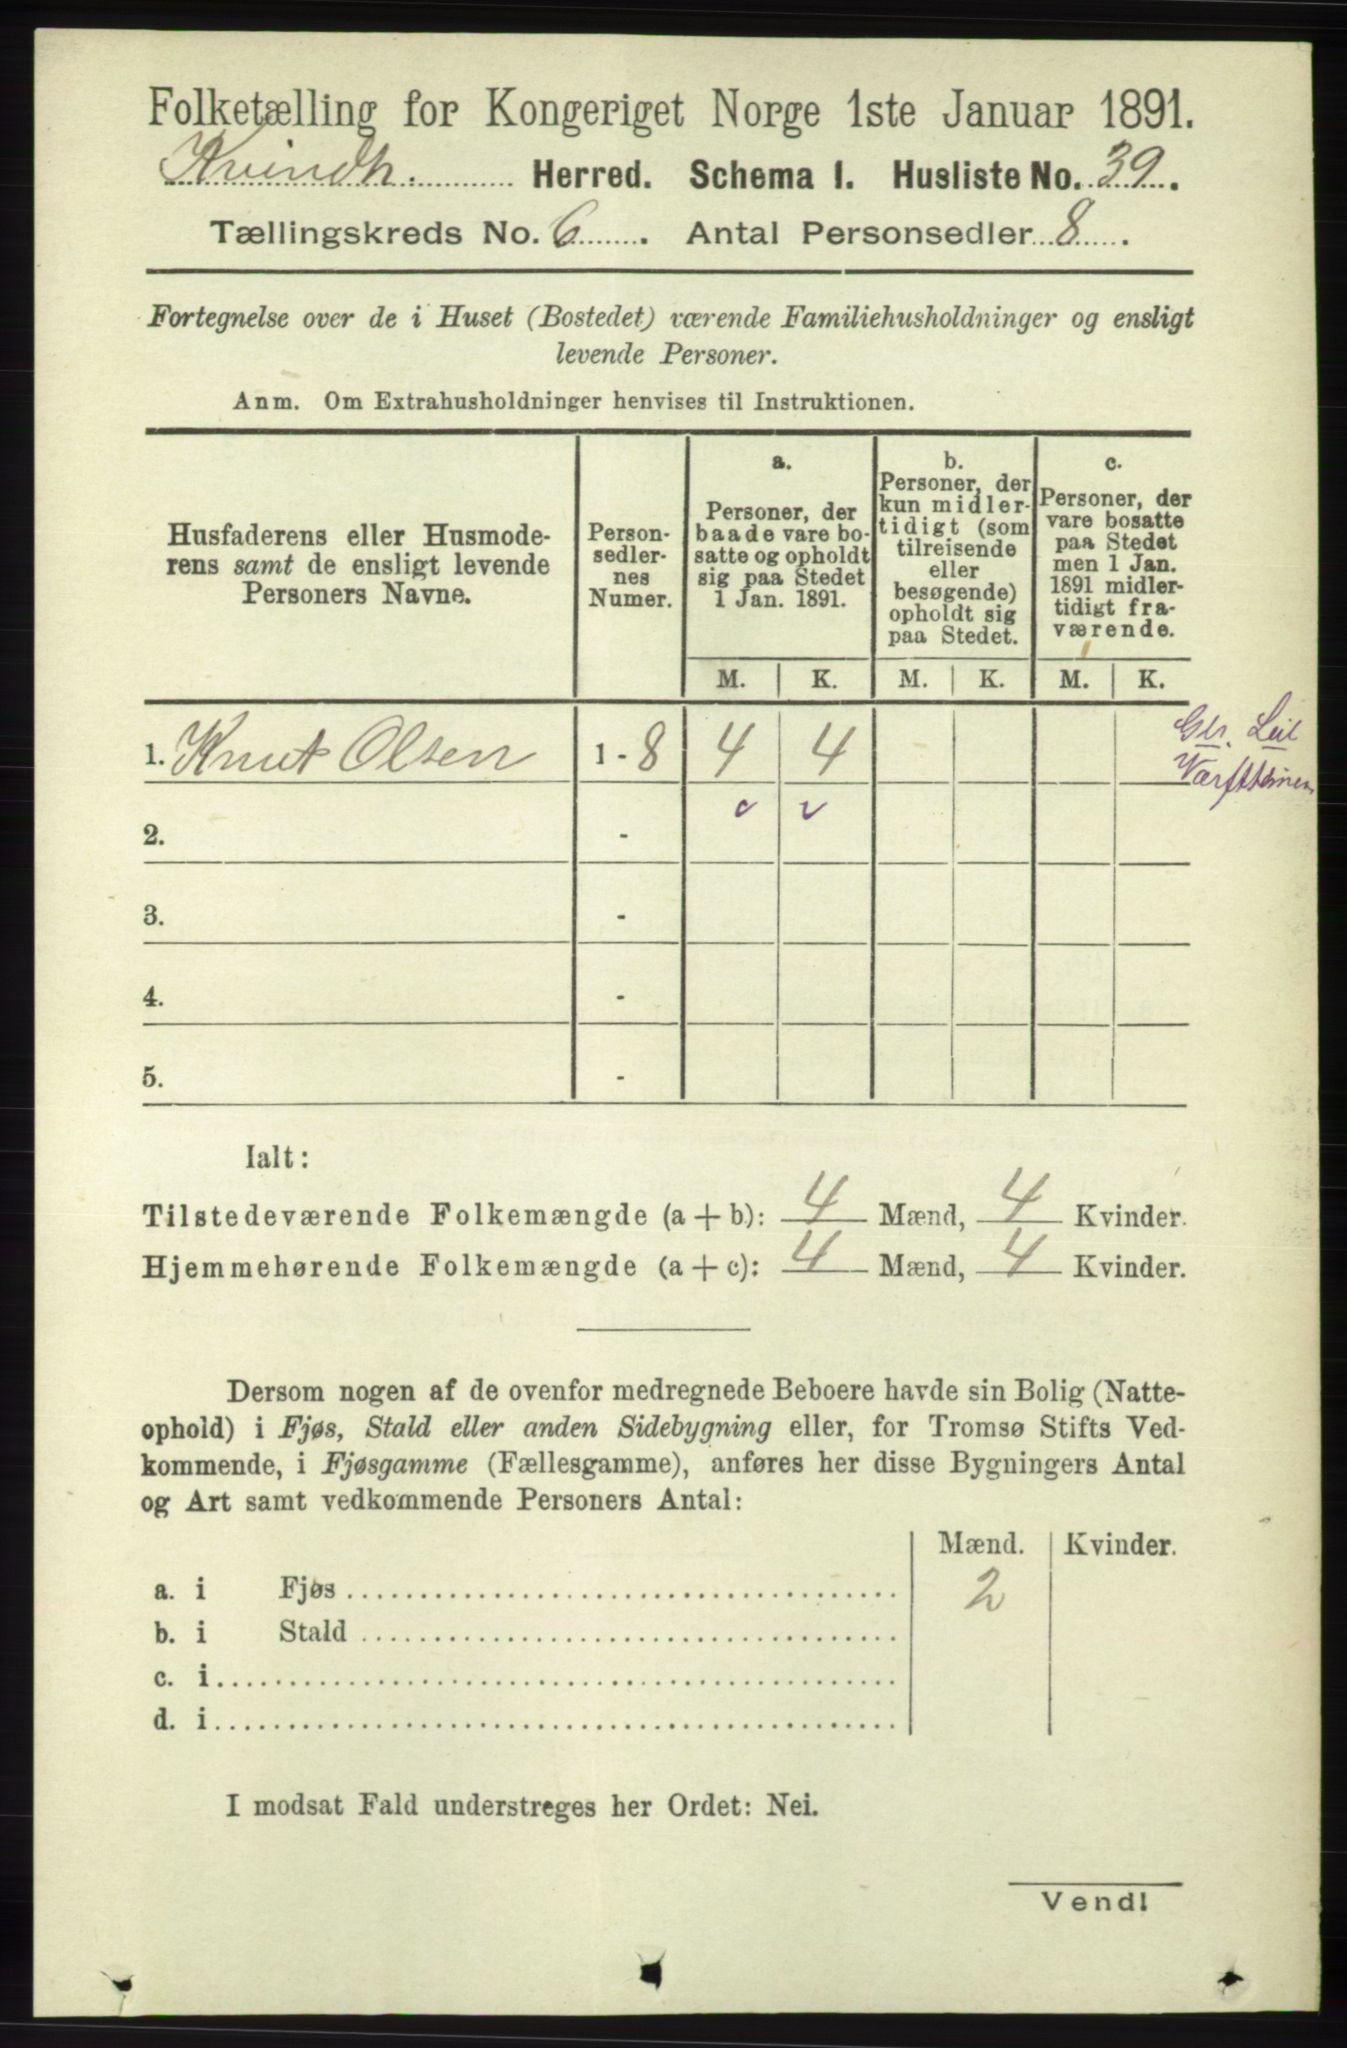 Folketælling for Kongeriget Norge 1ste Januar 1891.
Kvindh. Herred. Schema I. Husliste No. 39.
Tællingskreds No. 6. Antal Personsedler 8.
Fortegnelse over de i Huset (Bostedet) værende Familiehusholdninger og ensligt
levende Personer.
Anm. Om Extrahusholdninger henvises til Instruktionen.
Husfaderens eller Husmode-
rens samt de ensligt levende
Personers Navne.
Person-
sedler-
nes
Numer.
a.
Personer, der
baade vare bo-
satte og opholdt
sig paa Stedet
1 Jan. 1891.
b.
Personer, der
kun midler-
tidigt (som
tilreisende
eller
besøgende)
opholdt sig
paa Stedet.
c.
Personer, der
vare bosatte
paa Stedet
men 1 Jan.
1891 midler-
tidigt fra-
værende.
M. K. M. K. M. K.
1. Knut Olsen 1 - 8 4 4
Leil
2. -
3. -
4. -
5. -
Ialt:
Tilstedeværende Folkemængde (a + b): 4 Mænd, 4 Kvinder.
Hjemmehørende Folkemængde (a + c): 4 Mænd, 4 Kvinder.
Dersom nogen af de ovenfor medregnede Beboere havde sin Bolig (Natte-
ophold) i Fjøs, Stald eller anden Sidebygning eller, for Tromsø Stifts Ved-
kommende, i Fjøsgamme (Fællesgamme), anføres her disse Bygningers Antal
og Art samt vedkommende Personers Antal:
Mænd. Kvinder.
a. i Fjøs 2
b. i Stald
c. i
d. i
I modsat Fald understreges her Ordet: Nei.
Vendl